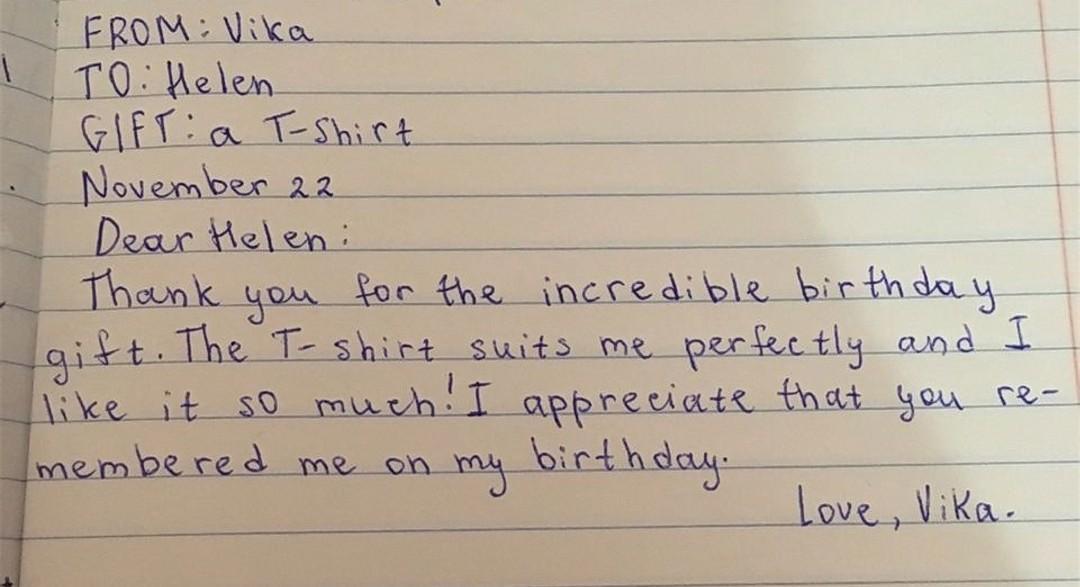 FROM: Vika
TO: Helen
GIFT: a T-Shirt
November 22
Dear Helen:
Thank you for the incredible birthday
gift. The T-shirt suits me perfectly and I
like it so much! I appreciate that you re-
membered me on my birthday.
Love, Vika.